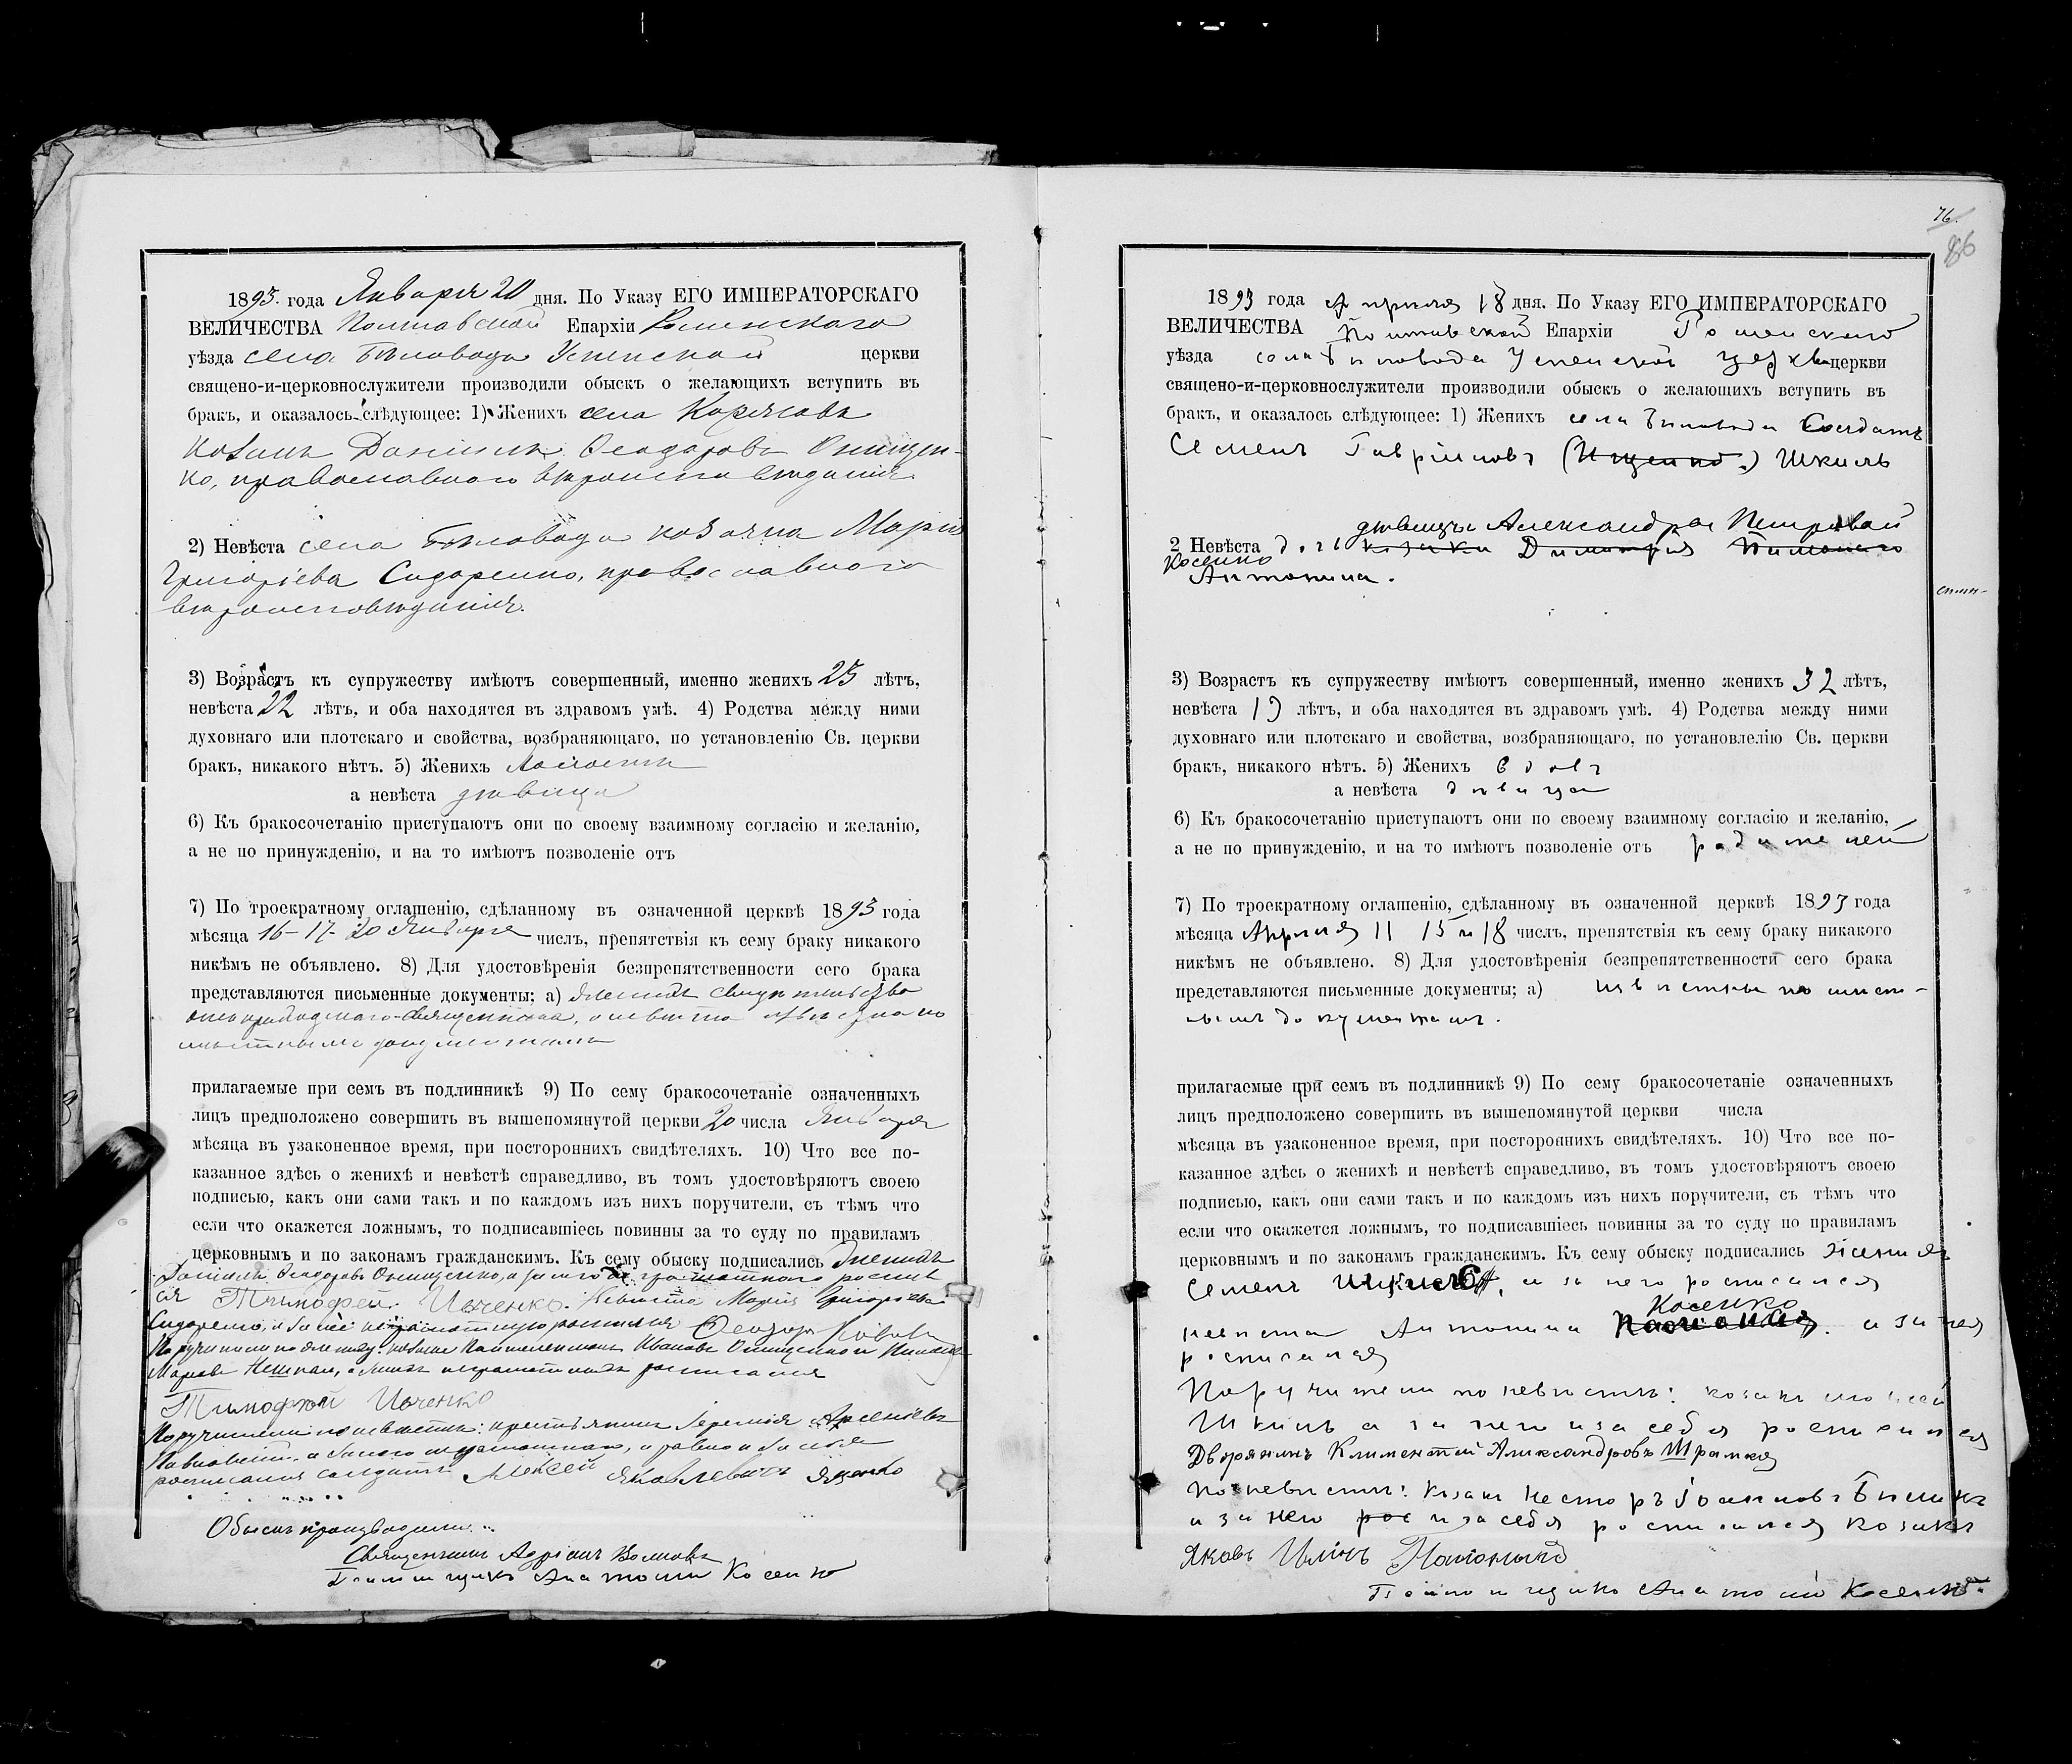 1893. года Января 20 дня. По Указу ЕГО ИМПЕРАТОРСКАГО
ВЕЛИЧЕСТВА Полтавской Епархіи Роменскаго
уѣзда села Бѣловода Успенской церкви
священо-и-церковнослужители производили обыскъ о желающихъ вступить въ
бракъ, и оказалось слѣдующее: 1) Женихъ села
козакъ Даніилъ Ѳеодоровъ Онищен-
ко, православнаго вѣроисповѣданія.
2) Невѣста села Бѣловода козачка Марія
Григоріева Сидоренко, православнаго
вѣроисповѣданія.
3) Возрастъ къ супружеству имѣютъ совершенный, именно женихъ 25 лѣтъ,
невѣста 22 лѣтъ, и оба находятся въ здравомъ умѣ. 4) Родства между ними
духовнаго или плотскаго и свойства, возбраняющаго, по установленію Св. церкви
бракъ, никакого нѣтъ. 5) Женихъ холостъ
а невѣста дѣвица
6) Къ бракосочетанію приступаютъ они по своему взаимному согласію и желанію,
а не по принужденію, и на то имѣютъ позволеніе отъ
7) По троекратному оглашенію, сдѣланному въ означенной церквѣ 1893 года
мѣсяца 16-17-20 Января числъ, препятствія къ сему браку никакого
никѣмъ не объявлено. 8) Для удостовѣренія безпрепятственности сего брака
представляются письменные документы; а) свидѣтельство
приходскаго священника, а невѣста извѣстна по
мѣстнымъ документамъ
прилагаемые при семъ въ подлинникѣ 9) По сему бракосочетаніе означенныхъ
лицъ предположено совершить въ вышепомянутой церкви 20 числа Января
мѣсяца въ узаконенное время, при постороннихъ свидѣтеляхъ. 10) Что все по-
казанное здѣсь о женихѣ и невѣстѣ справедливо, въ томъ удостовѣряютъ своею
подписью, какъ они сами такъ и по каждомъ изъ нихъ поручители, съ тѣмъ что
если что окажется ложнымъ, то подписавшіесь повинны за то суду по правиламъ
церковнымъ и по законамъ гражданскимъ. Къ сему обыску подписались Женихъ
Даніилъ Ѳеодоровъ Онищенко, а за него неграмотнаго росписал
ся Тимофей Ивченко. Невѣста Марія Григоріева
Сидоренко, а за нее неграмотную росписался Ѳеодоръ
Поручители по женихѣ: козаки Пантелеимонъ Ивановъ Онищенко и
а за нихъ неграмотныхъ росписался
Тимофей Ивченко
Поручители по невѣстѣ: крестьянинъ Іеремія Арсеніевъ
а за него неграмотнаго, и равно и за себя
росписался солдатъ Алексей Яковлевичъ Яценко
Обыскъ производили:
Священникъ Адріанъ Волковъ
Псаломщикъ Анатолій Косенко
76.
86
1893 года Апрѣля 18 дня. По Указу ЕГО ИМПЕРАТОРСКАГО
ВЕЛИЧЕСТВА Полтавской Епархіи Роменскаго
уѣзда села Бѣловода Успенской церкви церкви
священо-и-церковнослужители производили обыскъ о желающихъ вступить въ
бракъ, и оказалось слѣдующее: 1) Женихъ села Бѣловода Солдатъ
Семенъ Гавріиловъ (Ищенко.) Шкиль
дѣвицы Александры Петровой
2 Невѣста дочь козака Димитрія
Косенко
Антонина.
3) Возрастъ къ супружеству имѣютъ совершенный, именно женихъ 32 лѣтъ,
невѣста 19 лѣтъ, и оба находятся въ здравомъ умѣ. 4) Родства между ними
духовнаго или плотскаго и свойства, возбраняющаго, по установлелію Св. церкви
бракъ, никакого нѣтъ. 5) Женихъ вдовъ
а невѣста дѣвица
6) Къ бракосочетанію приступаютъ они по своему взаимному согласію и желанію,
а не по принужденію, и на то имѣютъ позволеніе отъ родителей
7) По троекратному оглашенію, сдѣланному въ означенной церквѣ 1893 года
мѣсяца Апрѣля 11 15 и 18 числъ, препятствія къ сему браку никакого
никѣмъ не объявлено. 8) Для удостовѣренія безпрепятственности сего брака
представляются письменные документы; а) извѣстны по мѣст-
нымъ документамъ.
прилагаемые при семъ въ подлинникѣ 9) По сему бракосочетаніе означенныхъ
лицъ предположено совершить въ вышепомянутой церкви числа
мѣсяца въ узаконенное время, при постороннихъ свидѣтеляхъ. 10) Что все по-
казанное здѣсь о женихѣ и невѣстѣ справедливо, въ томъ удостовѣряютъ своею
подписью, какъ они сами такъ и по каждомъ изъ нихъ поручители, съ тѣмъ что
если что окажется ложнымъ, то подписавшіесь повинны за то суду по правиламъ
церковнымъ и по законамъ гражданскимъ. Къ сему обыску подписались Женихъ
Семенъ а за него росписался
Косенко
невѣста Антонина а за нея
росписался
Поручители по невѣстѣ: козакъ
Шкиль а за него и за себя росписался
Дворянинъ Климентій Александровъ Шрамко
по невѣстѣ: козакъ Несторъ Іоакимовъ
а за него рос и за себя росписался козакъ
Яковъ Илінъ
Псаломщикъ Анатолій Косенко